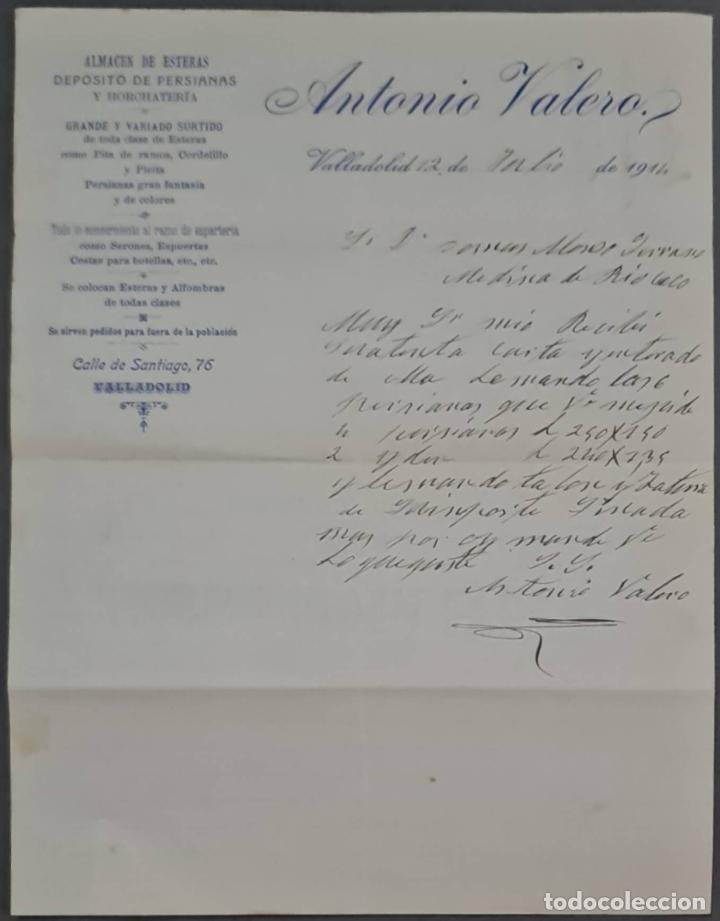 ALMACEN DE ESTERAS
DEPÓSITO DE PERSIANAS
Y HORCHATERÍA
GRANDE Y VARIADO SURTIDO
de toda clase de Esteras
como Pita de ramos, Cordelillo
y Pleita
Persianas gran fantasía
y de colores
Todo lo concerniente al ramo de espartería
como Serones, Espuertas
Costas para botellas, etc., etc.
Se colocan Esteras y Alfombras
de todas clases
Se sirven pedidos para fuera de la población
Calle de Santiago, 76
VALLADOLID
Antonio Valero.
Valladolid 12 de Julio de 191
Sr Dn
Medina de Rioseco
Muy Sr mio Recibi
su atenta carta y enterado
de ella Le mando las 6
persianas que Vd me pide
4 persianas d 250X150
2 y den d 240X135
y le mando talon y fatura
de su importe
mas por oy mande Vd
Lo que guste S. S.
Antonio Valero
todocoleccion
todocoleccion.net